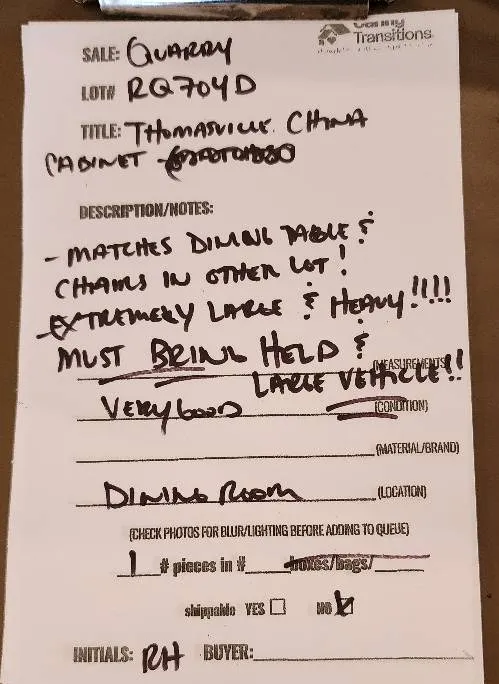 Transitions
SALE: QUARRY
LOT# RQ704D
TITLE: THOMASVILLE CHINA
CABINET
DESCRIPTION/NOTES:
- MATCHES DINING TABLE &
CHAIRS IN OTHER LOT!
EXTREMELY LARGE & HEAVY!!!!
MUST BRING HELP &
(MEASUREMENTS)
LARGE VEHICLE!!
VERY GOOD (CONDITION)
(MATERIAL/BRAND)
DINING ROOM (LOCATION)
(CHECK PHOTOS FOR BLUR/LIGHTING BEFORE ADDING TO QUEUE)
1 # pieces in # boxes/bags/
shippable YES NO
INITIALS: RH BUYER: